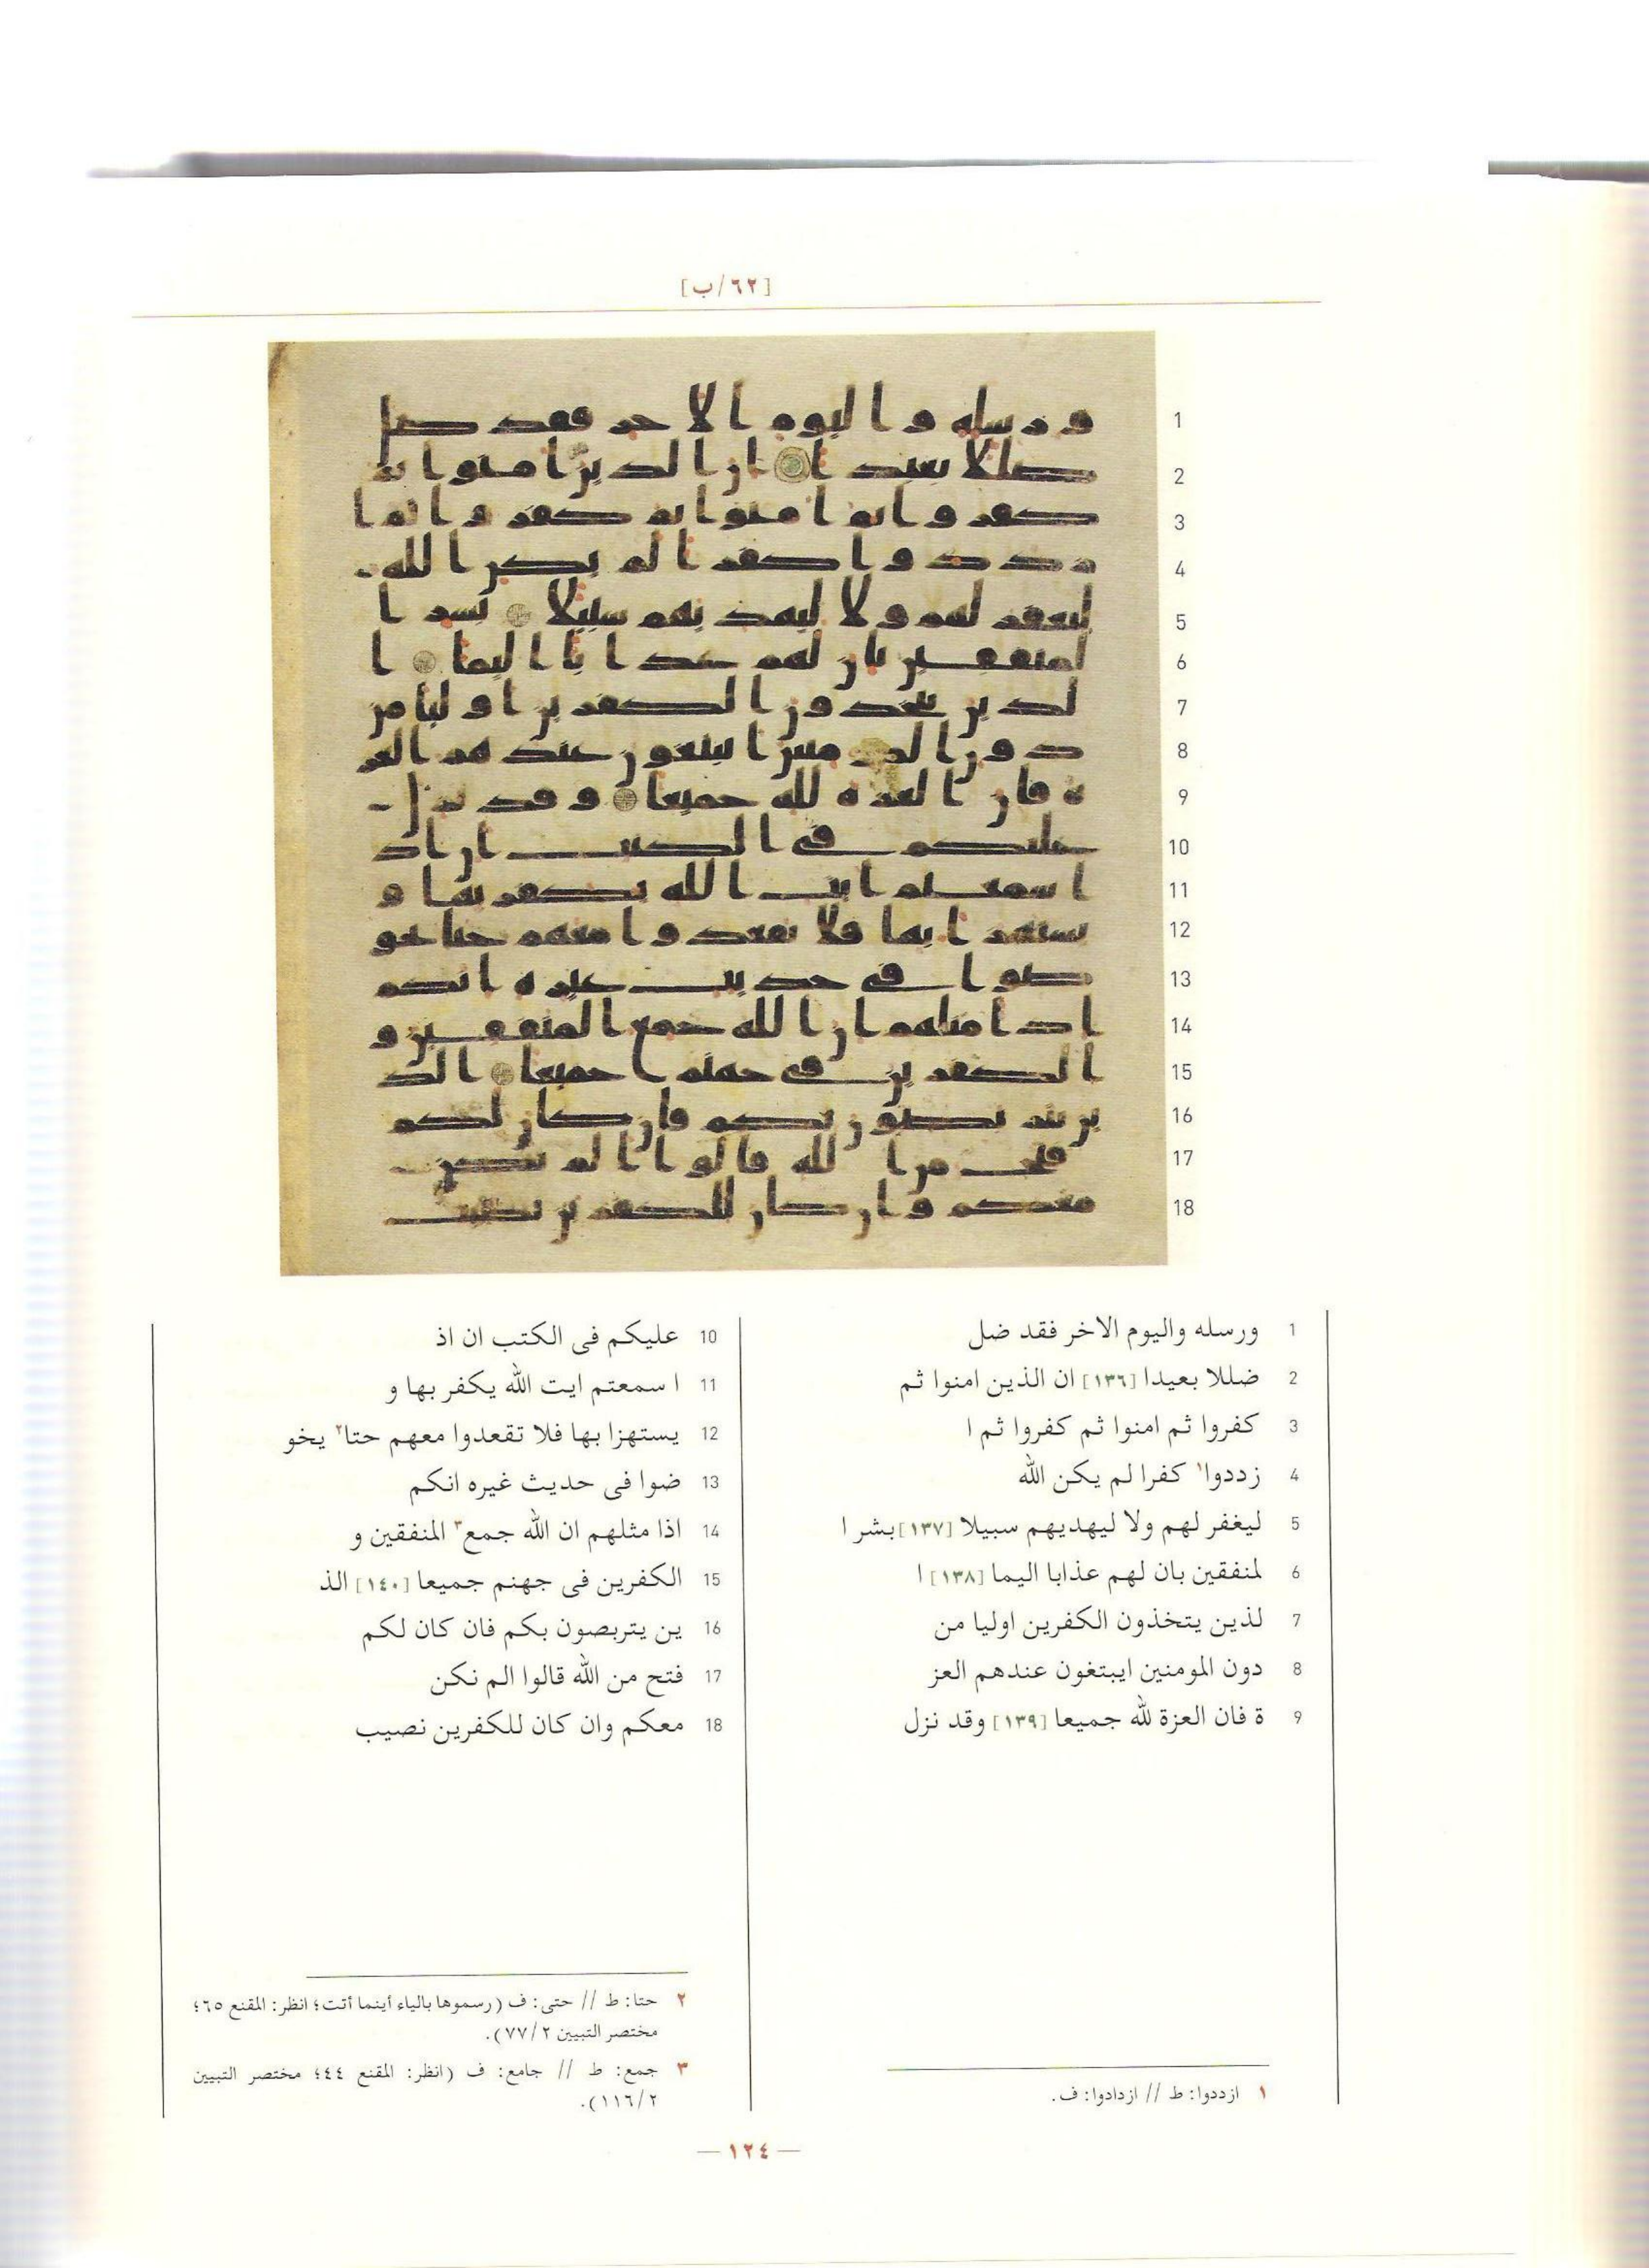 [٦٢/ب]
1 ورسله واليوم الاخر فقد ضل
2 ضللا بعيدا [١٣٦] ان الذين امنوا ثم
3 كفروا ثم امنوا ثم كفروا ثم ا
4 زددوا١ كفرا لم يكن الله
5 ليغفر لهم ولا ليهديهم سبيلا [١٣٧] بشر ا
6 لمنفقين بان لهم عذابا اليما [١٣٨] ا
7 لذين يتخذون الكفرين اوليا من
8 دون المومنين ايبتغون عندهم العز
9 ة فان العزة لله جميعا [١٣٩] وقد نزل
10 عليكم فى الكتب ان اذ
11 ا سمعتم ايت الله يكفر بها و
12 يستهزا بها فلا تقعدوا معهم حتا٢ يخو
13 ضوا فى حديث غيره انكم
14 اذا مثلهم ان الله جمع٣ المنفقين و
15 الكفرين فى جهنم جميعا [١٤٠] الذ
16 ين يتربصون بكم فان كان لكم
17 فتح من الله قالوا الم نكن
18 معكم وان كان للكفرين نصيب
١ ازددوا: ط // ازدادوا: ف.
٢ حتا: ط // حتى: ف (رسموها بالياء أينما أتت؛ انظر: المقنع ٦٥؛
مختصر التبيين ٧٧/٢).
٣ جمع: ط // جامع: ف (انظر: المقنع ٤٤؛ مختصر التبيين
١١٦/٢).
— ١٢٤ —